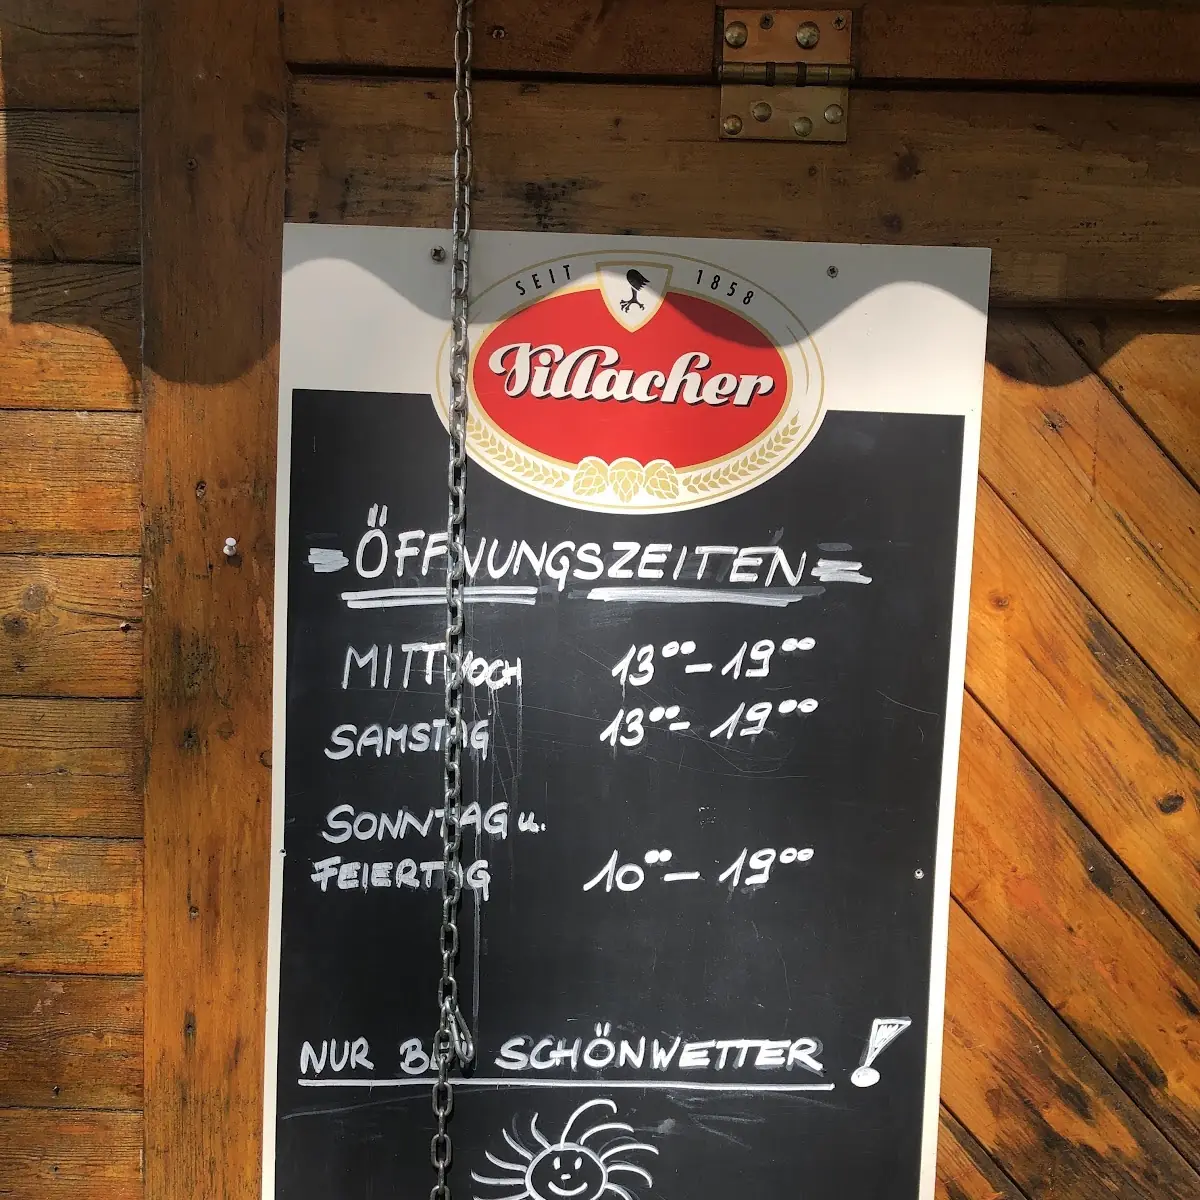 SEIT 1858
Villacher
=ÖFFNUNGSZEITEN=
MITTWOCH 13⁰⁰-19⁰⁰
SAMSTAG 13⁰⁰-19⁰⁰
SONNTAG u.
FEIERTAG 10⁰⁰-19⁰⁰
NUR BEI SCHÖNWETTER !